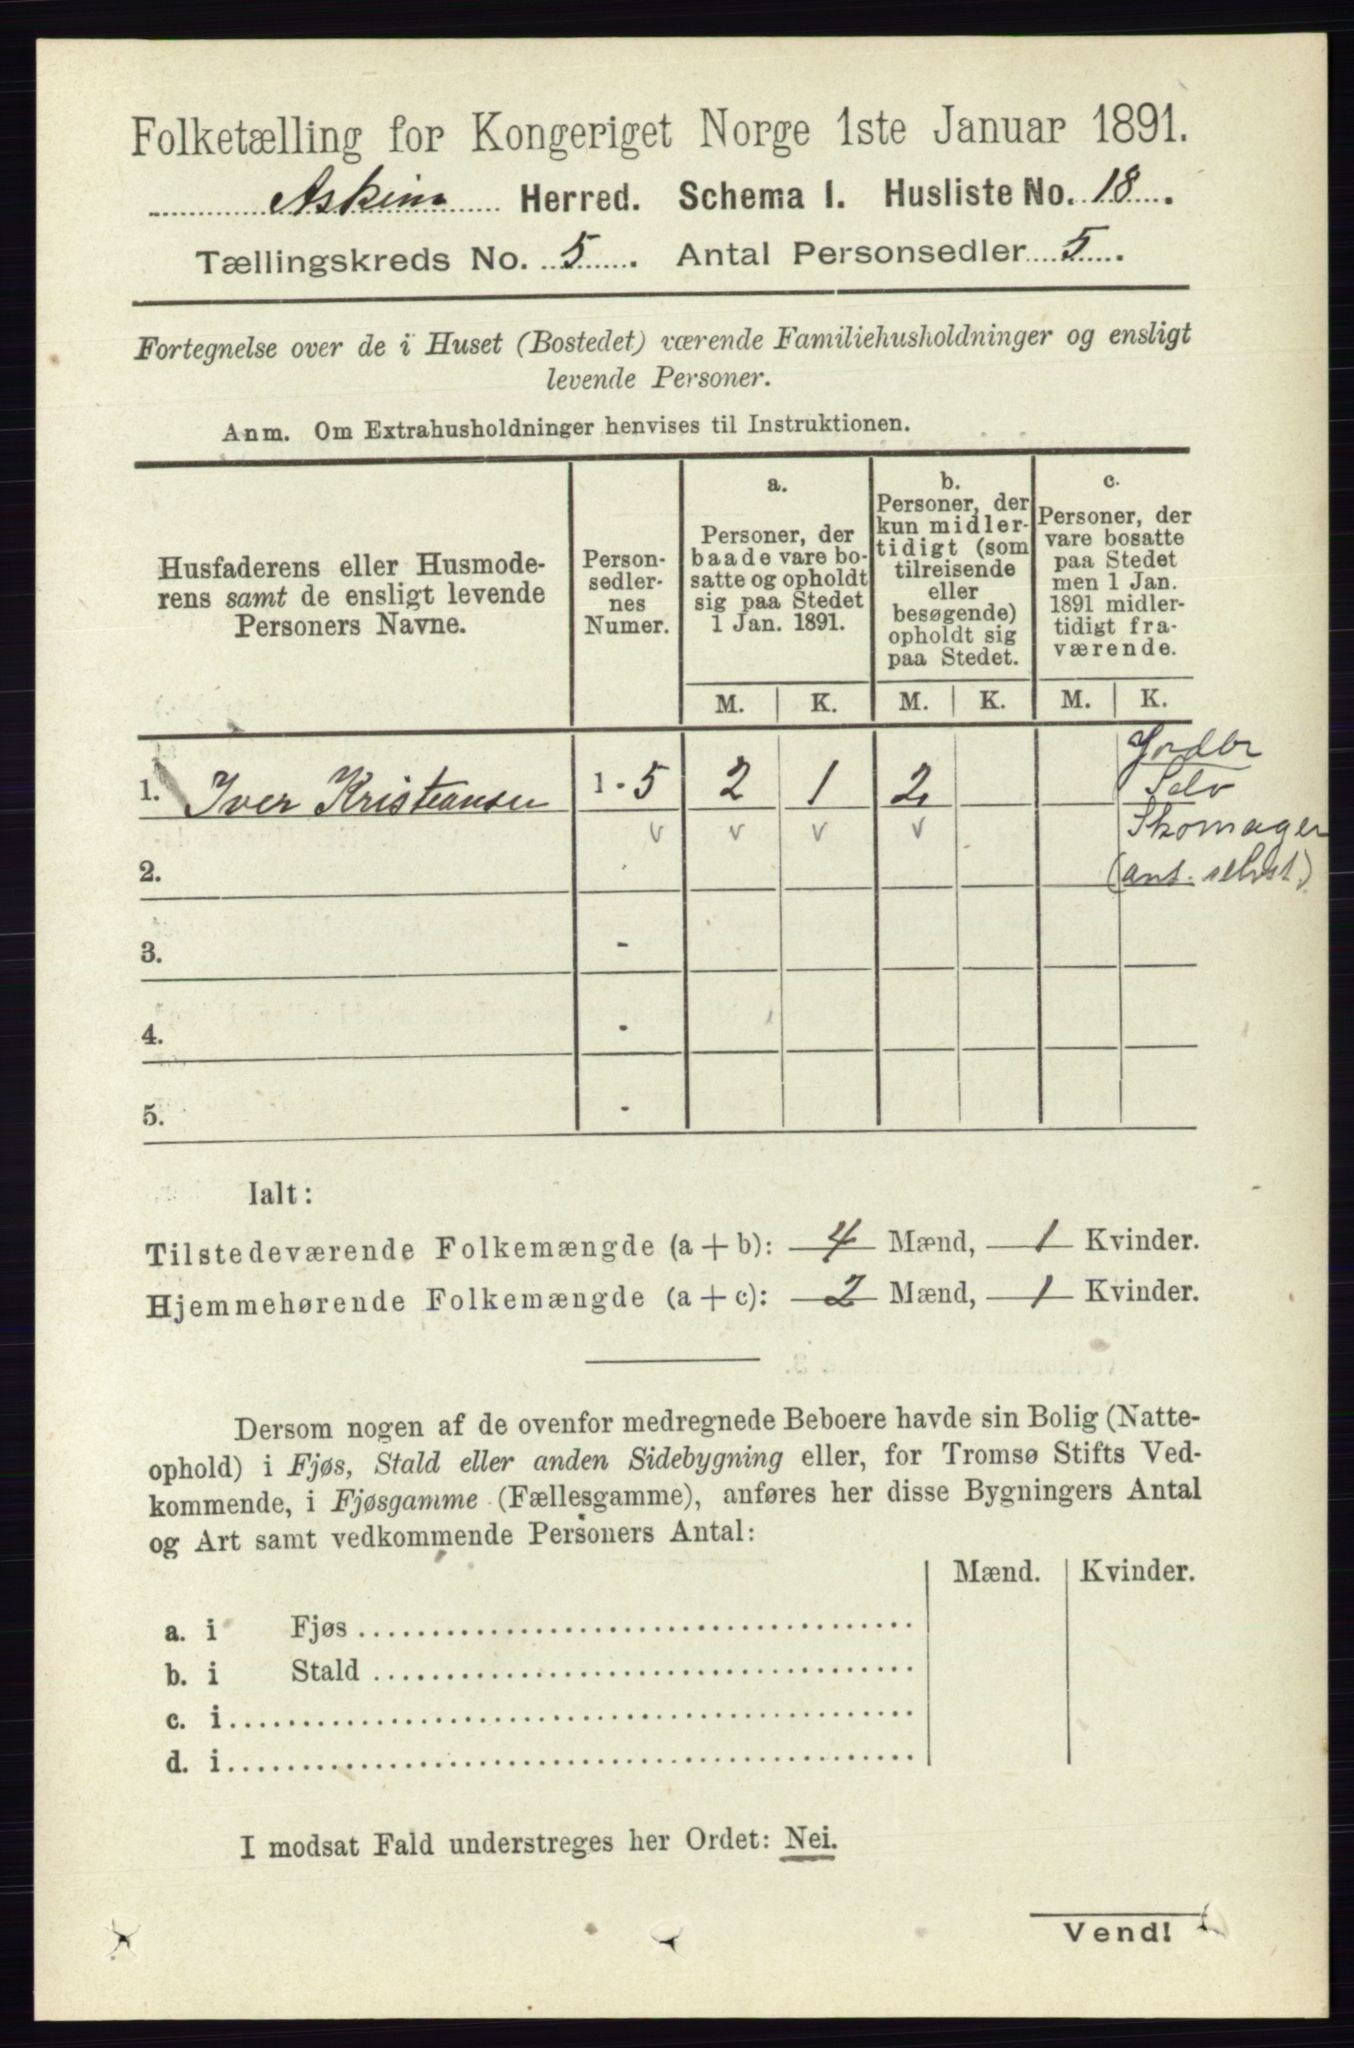 Folketælling for Kongeriget Norge 1ste Januar 1891.
Askim Herred. Schema I. Husliste No. 18.
Tællingskreds No. 5. Antal Personsedler 5.
Fortegnelse over de i Huset (Bostedet) værende Familiehusholdninger og ensligt
levende Personer.
Anm. Om Extrahusholdninger henvises til Instruktionen.
Husfaderens eller Husmode-
rens samt de ensligt levende
Personers Navne.
Person-
sedler-
nes
Numer.
a.
Personer, der
baade vare bo-
satte og opholdt
sig paa Stedet
1 Jan. 1891.
b.
Personer, der
kun midler-
tidigt (som
tilreisende
eller
besøgende)
opholdt sig
paa Stedet.
c.
Personer, der
vare bosatte
paa Stedet
men 1 Jan.
1891 midler-
tidigt fra-
værende.
M. K. M. K. M. K.
1. Iver Kristiansen 1 - 5 2 1 2
Jordbr
Selv
Skomager
(ant. selvst.)
v v v v
2.
3. -
4. -
5. -
Ialt:
Tilstedeværende Folkemængde (a + b): 4 Mænd, 1 Kvinder.
Hjemmehørende Folkemængde (a + c): 2 Mænd, 1 Kvinder.
Dersom nogen af de ovenfor medregnede Beboere havde sin Bolig (Natte-
ophold) i Fjøs, Stald eller anden Sidebygning eller, for Tromsø Stifts Ved-
kommende, i Fjøsgamme (Fællesgamme), anføres her disse Bygningers Antal
og Art samt vedkommende Personers Antal:
Mænd. Kvinder.
a. i Fjøs
b. i Stald
c. i
d. i
I modsat Fald understreges her Ordet: Nei.
Vend!